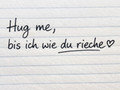 Hug me,
bis ich wie du rieche♡